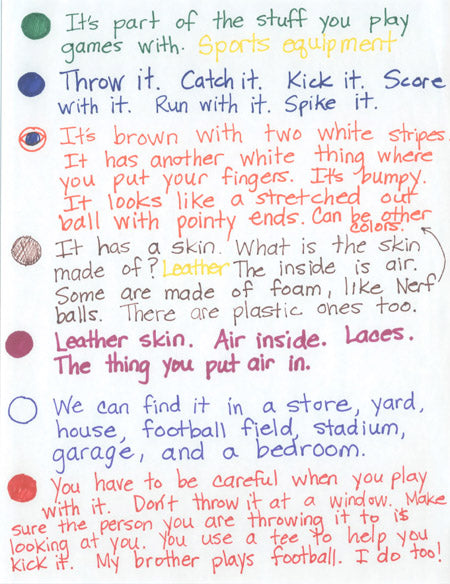 It's part of the stuff you play
games with. Sports equipment
Throw it. Catch it. Kick it. Score
with it. Run with it. Spike it.
It's brown with two white stripes.
It has another white thing where
you put your fingers. It's bumpy.
It looks like a stretched out
ball with pointy ends. Can be other
colors.
It has a skin. What is the skin
made of? Leather The inside is air.
Some are made of foam, like Nerf
balls. There are plastic ones too.
Leather skin. Air inside. Laces.
The thing you put air in.
We can find it in a store, yard,
house, football field, stadium,
garage, and a bedroom.
You have to be careful when you play
with it. Don't throw it at a window. Make
sure the person you are throwing it to is
looking at you. You use a tee to help you
kick it. My brother plays football. I do too!